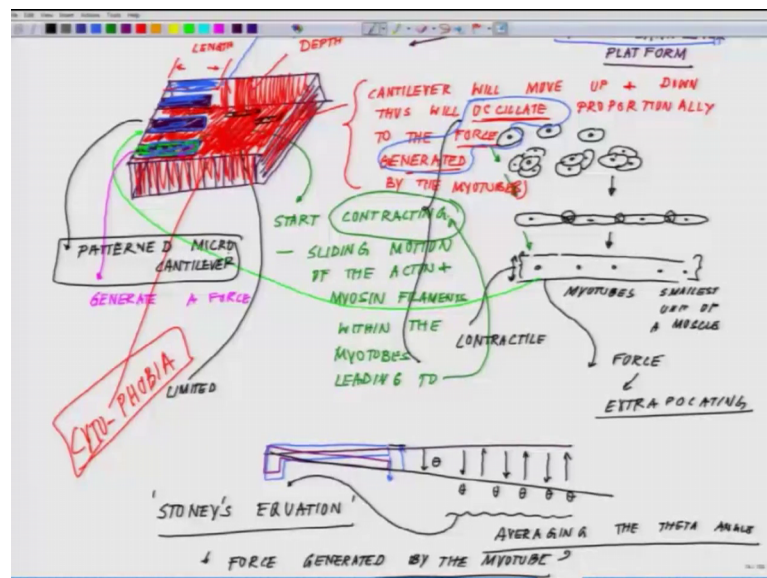 LENGTH
DEPTH
PLATFORM
CANTILEVER WILL MOVE UP + DOWN
THUS WILL OCCILLATE PROPORTIONALLY
TO THE FORCE
GENERATED
BY THE MYOTUBES
START CONTRACTING
— SLIDING MOTION
OF THE ACTIN +
MYOSIN FILAMENTS
WITHIN THE
MYOTUBES
LEADING TO
PATTERNED MICRO
CANTILEVER
GENERATE A FORCE
CYTO-PHOBIA
LIMITED
CONTRACTILE
MYOTUBES SMALLEST
UNIT OF
A MUSCLE
FORCE
EXTRAPOLATING
θ
θ θ θ θ θ
'STONEY'S EQUATION'
AVERAGING THE THETA ANGLE
↓ FORCE GENERATED BY THE MYOTUBE ?